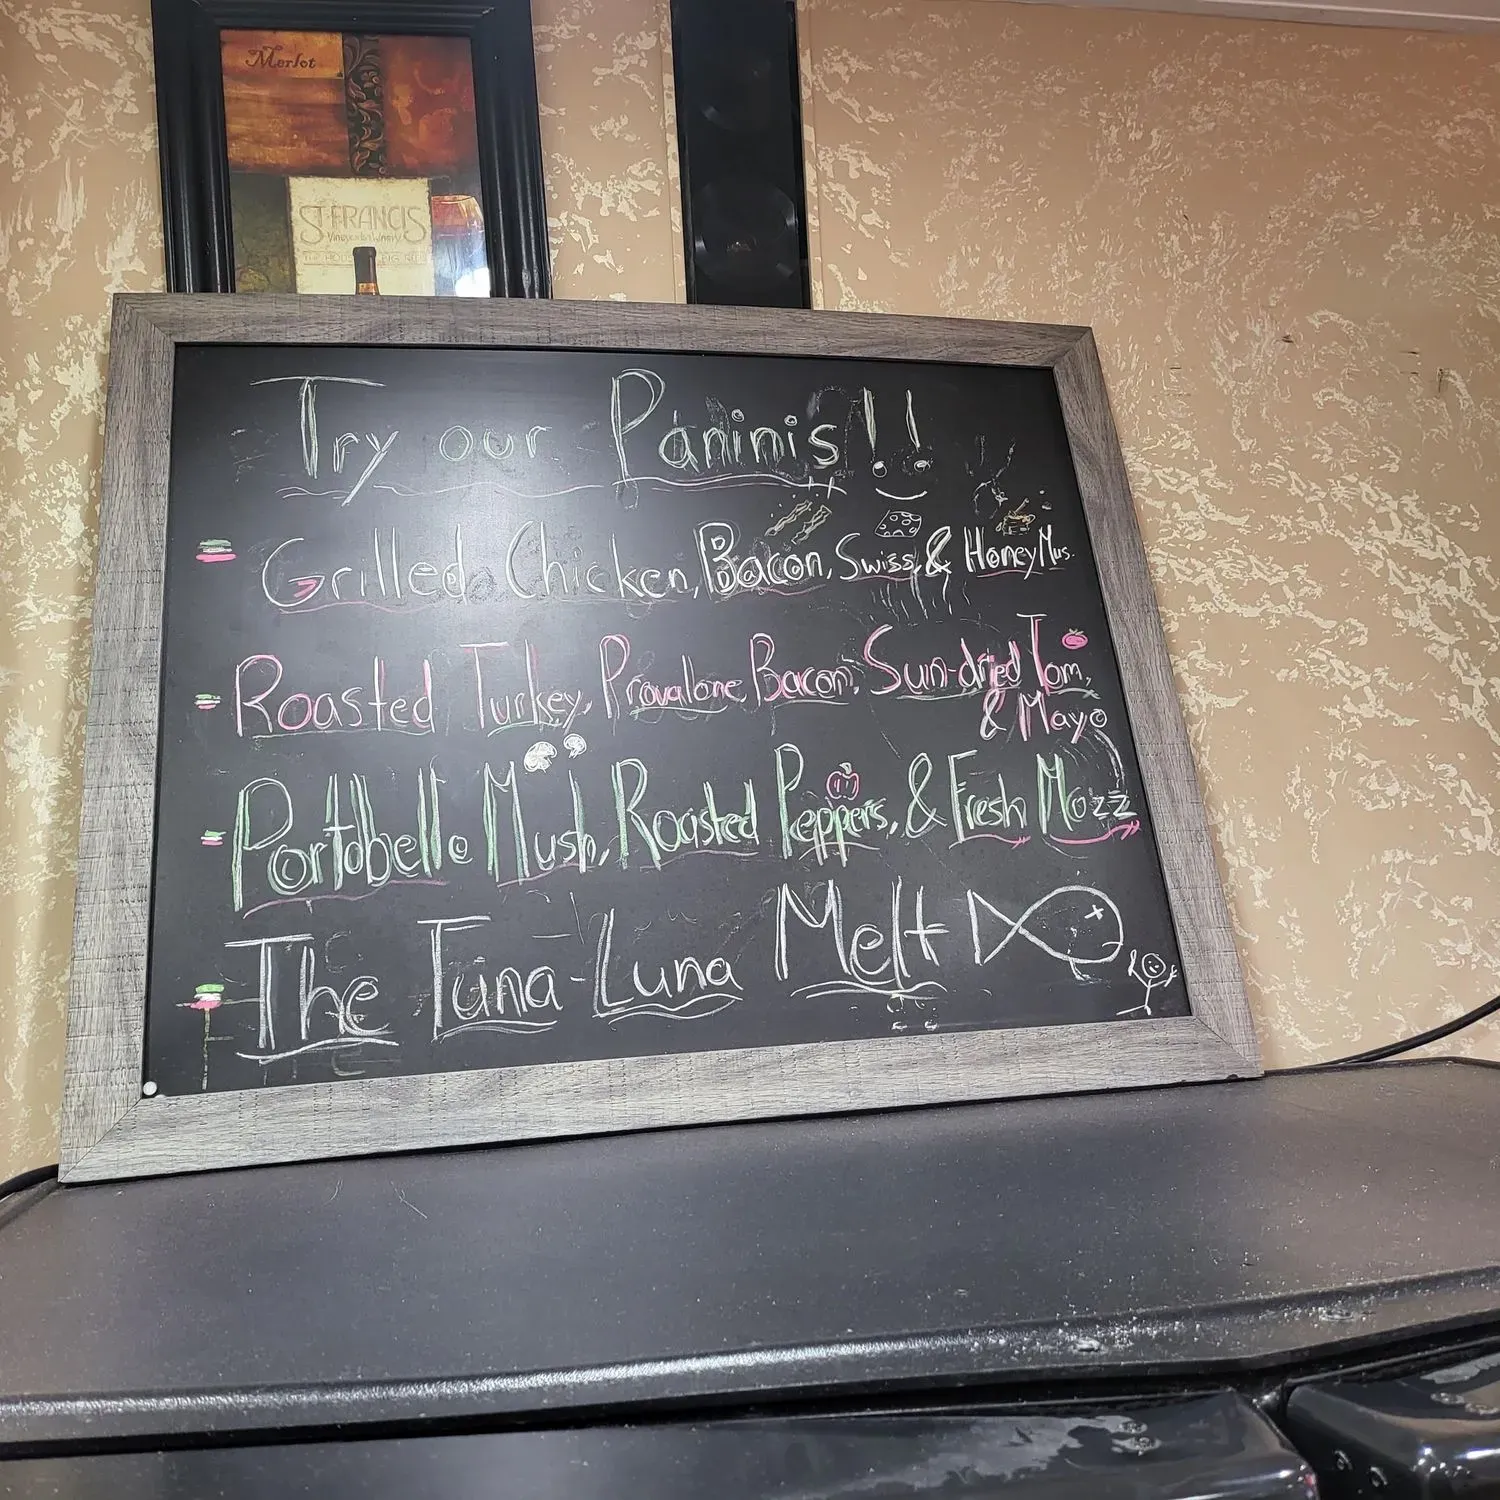 Merlot
ST. FRANCIS
Vineyards & Winery
Try our Paninis!!
Grilled Chicken, Bacon, Swiss, & Honey Mus.
Roasted Turkey, Provalone Bacon, Sun-dried Tom,
& Mayo
Portobello Mush, Roasted Peppers, & Fresh Mozz
The Tuna-Luna Melt